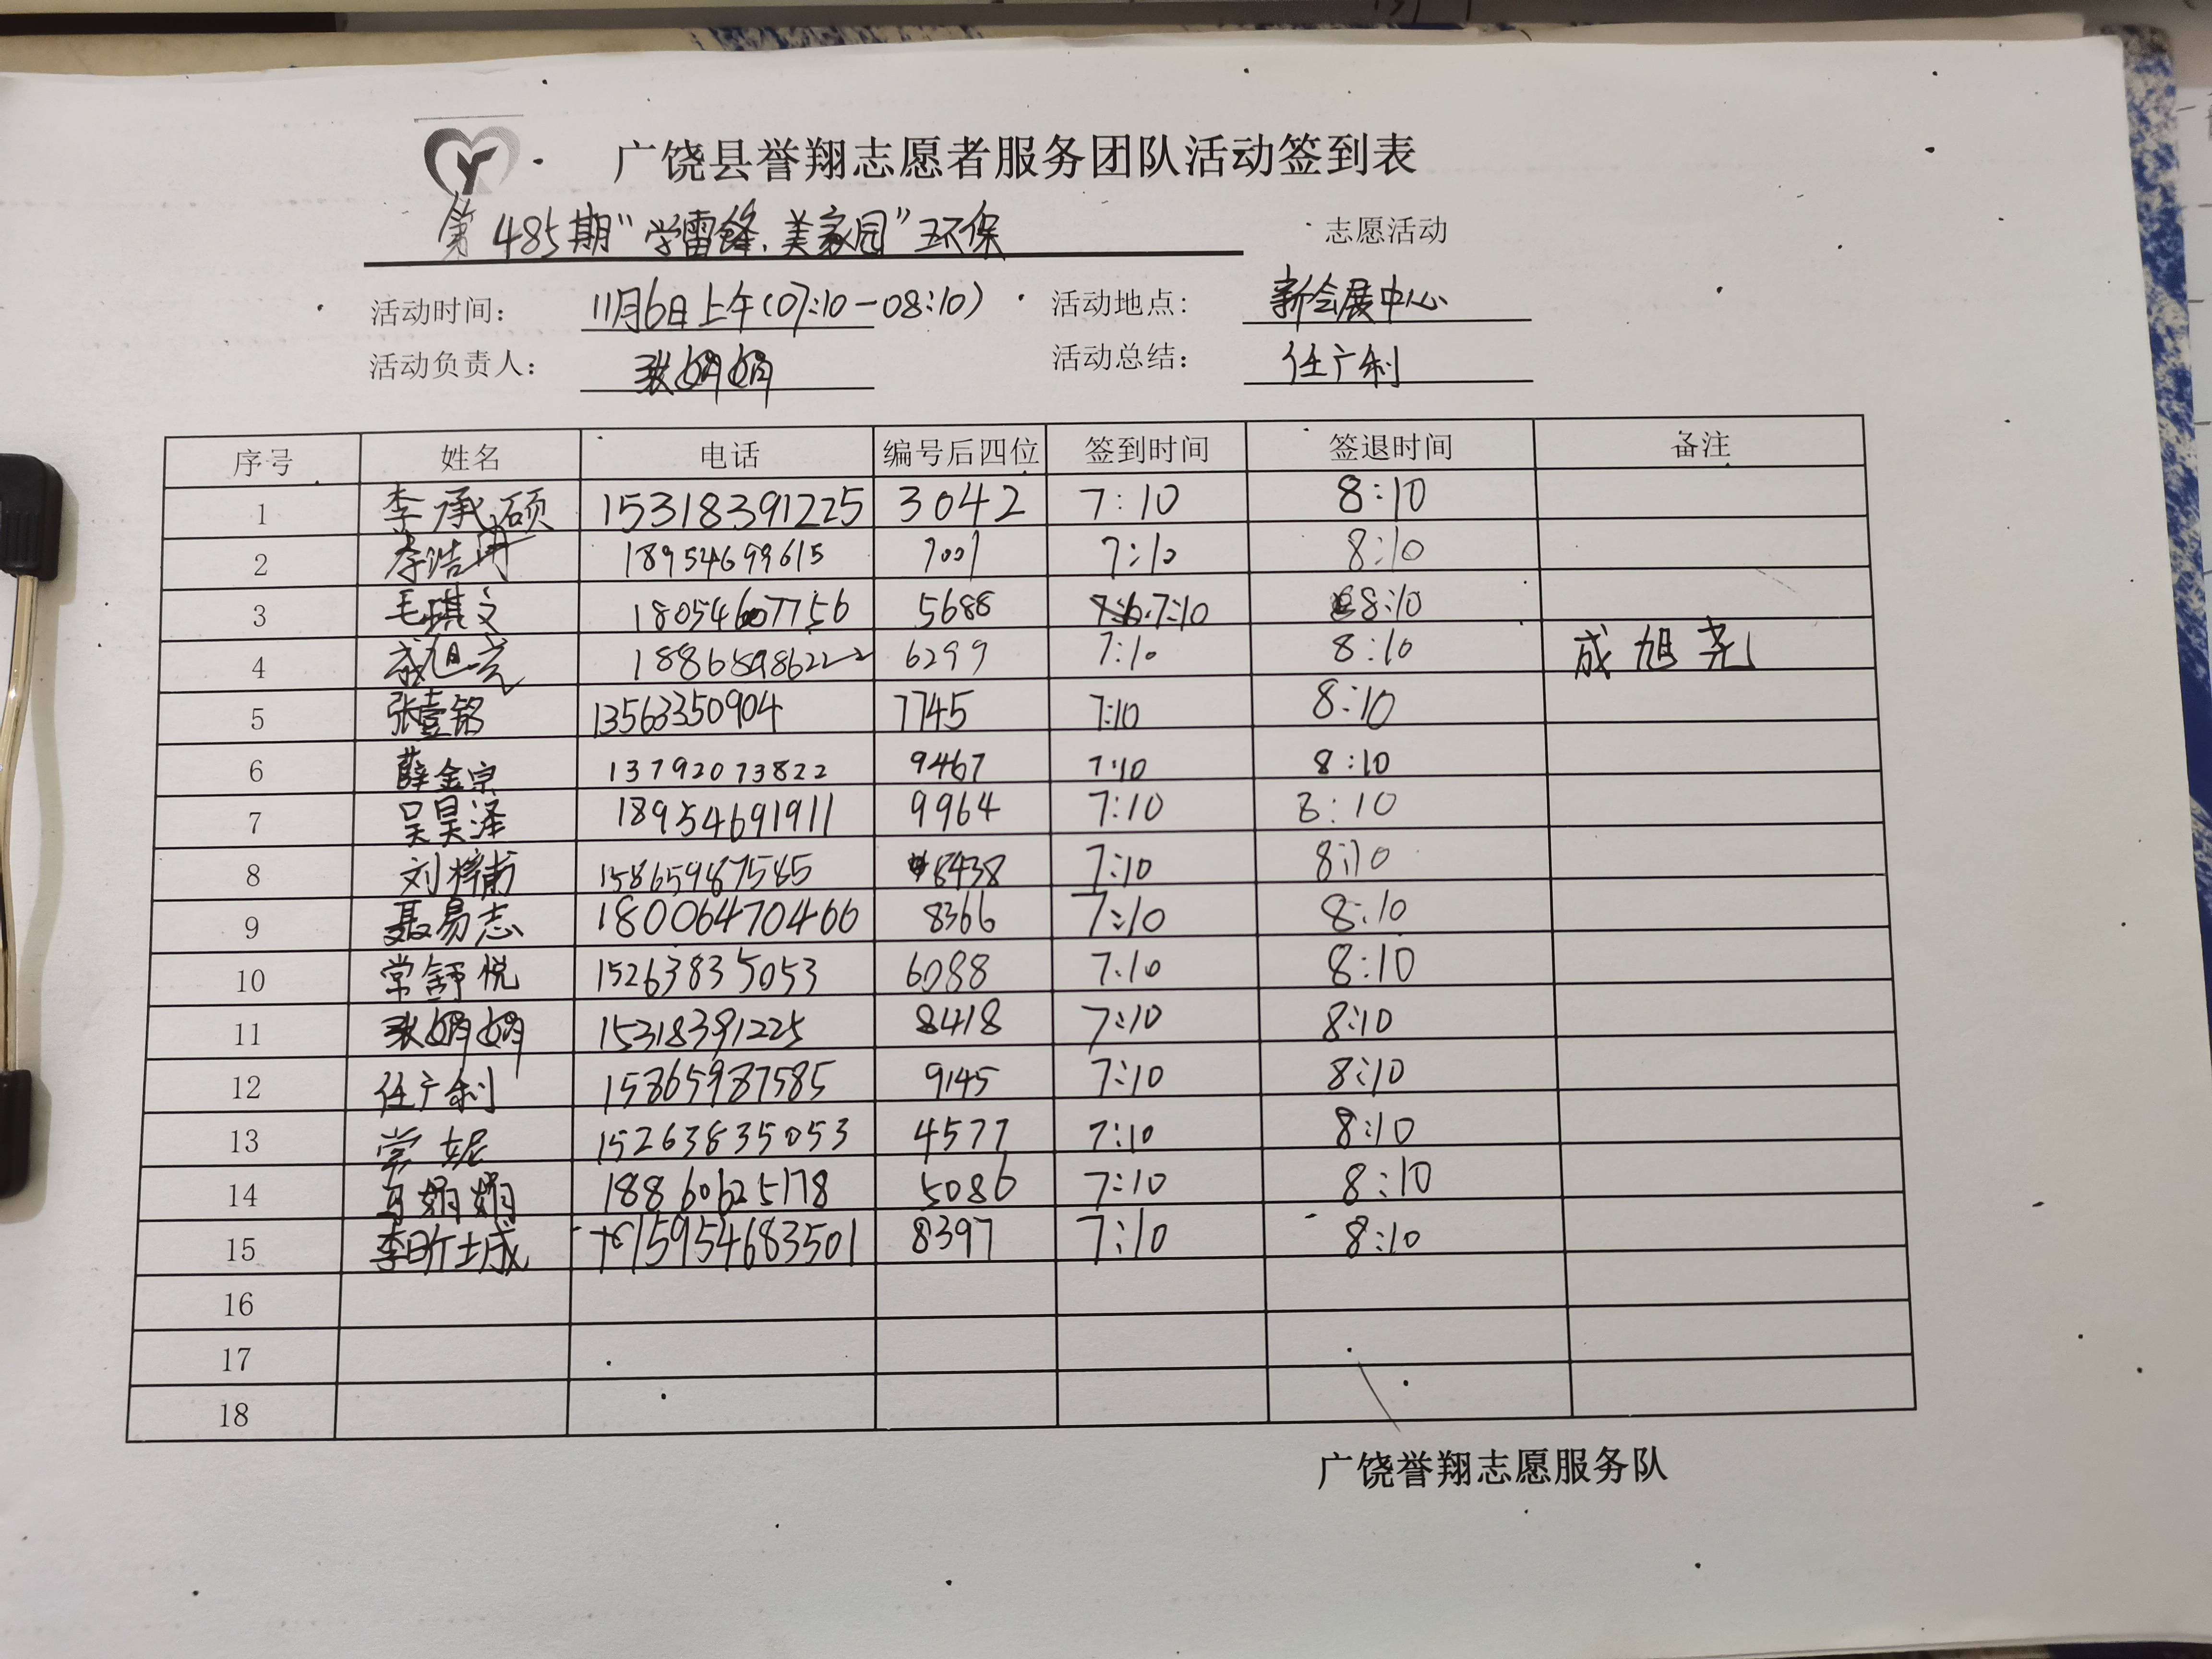 广饶县誉翔志愿者服务团队活动签到表
第485期“学雷锋.美家园”环保 志愿活动
活动时间： 11月6日上午(07:10-08:10) 活动地点： 新会展中心
活动负责人： 耿娟娟 活动总结： 任广利
序号 姓名 电话 编号后四位 签到时间 签退时间 备注
1 李承硕 15318391225 3042 7:10 8:10
2 李浩冉 18954699615 7001 7:10 8:10
3 毛琪文 18054607756 5688 7:10 8:10
4 成旭尧 6299 7:10 8:10 成旭尧
5 张壹铭 13563350904 7745 7:10 8:10
6 薛金宗 13792073822 9467 7:10 8:10
7 吴昊泽 18954691911 9964 7:10 8:10
8 刘梓甫 15865987585 8438 7:10 8:10
9 聂易志 18006470466 8366 7:10 8:10
10 常舒悦 15263835053 6088 7:10 8:10
11 耿娟娟 15318391225 8418 7:10 8:10
12 任广利 15865987585 9145 7:10 8:10
13 常妮 15263835053 4577 7:10 8:10
14 马娟娟 18860625178 5086 7:10 8:10
15 李昕城 15954683501 8397 7:10 8:10
16
17
18
广饶誉翔志愿服务队